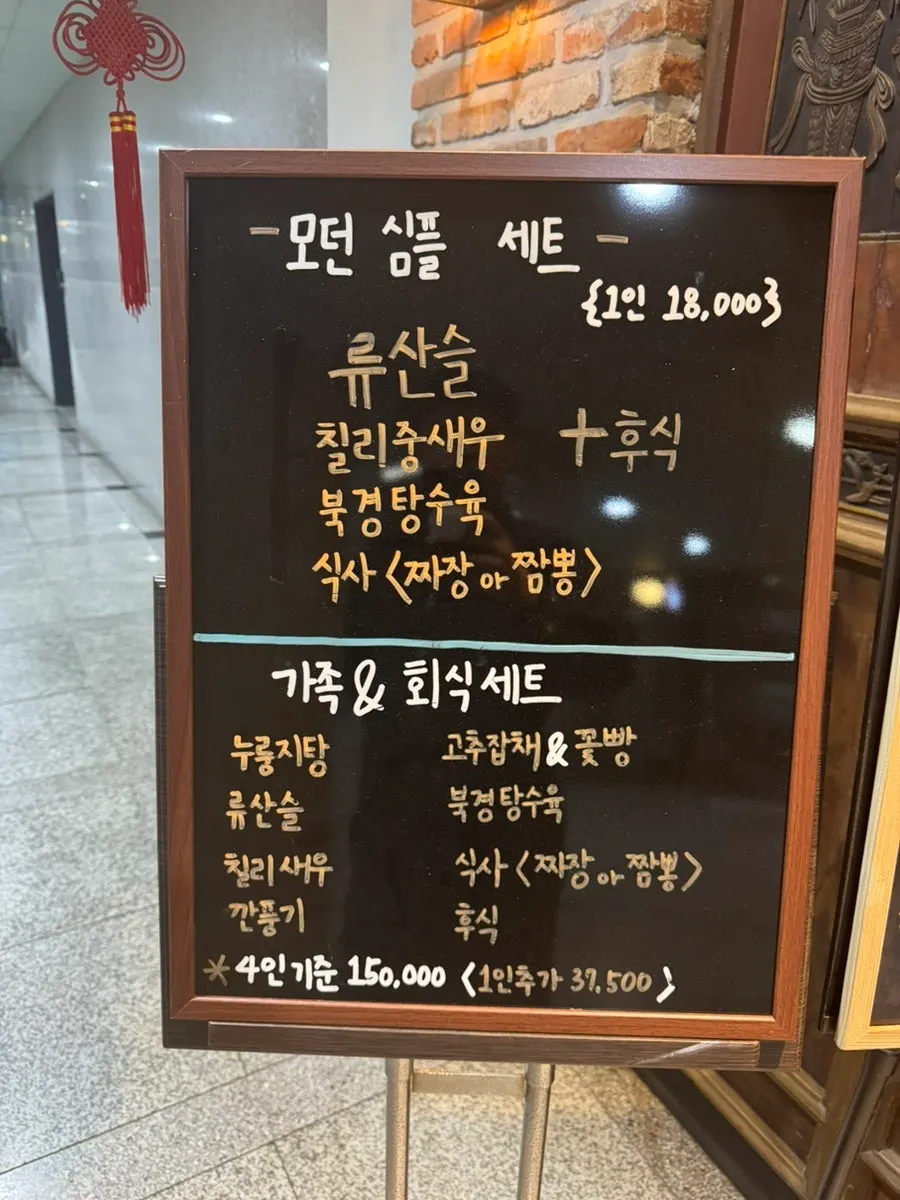 -모던 심플 세트-
{1인 18,000}
류산슬
칠리중새우 +후식
북경탕수육
식사 <짜장 or 짬뽕>
가족 & 회식세트
누룽지탕 고추잡채&꽃빵
류산슬 북경탕수육
칠리새우 식사 <짜장 or 짬뽕>
깐풍기 후식
*4인기준 150,000 <1인추가 37,500>